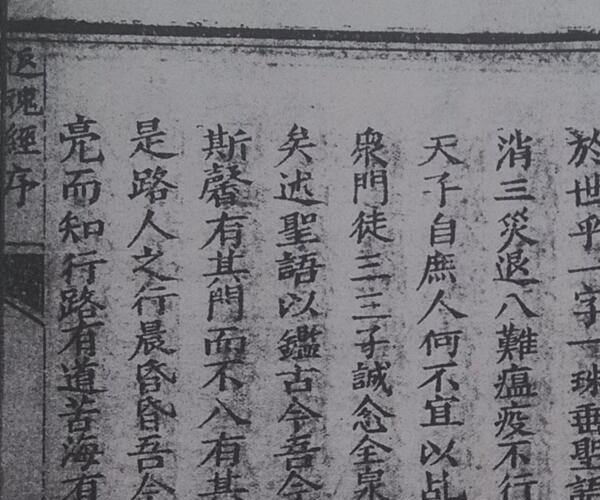 於世乎一字一珠垂聖語
消三災退八難瘟疫不行
天子自庶人何不宜以此
衆門徒三三子誠念全泉
矣述聖語以鑑古今吾今
斯馨有其門而不八有其
是路人之行晨昏昏吾今
亮而知行路有道苦海有
返魂經序